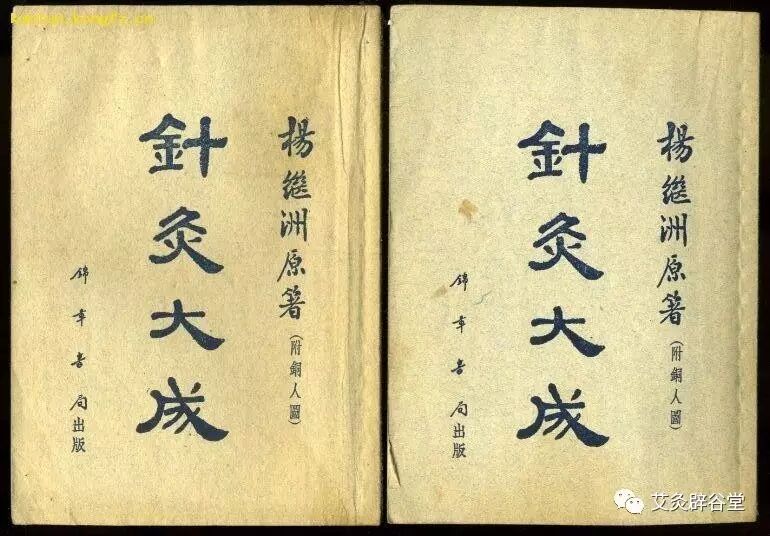 楊繼洲原箸(附銅人圖)
針灸大成
錦章書局出版
楊繼洲原箸(附銅人圖)
針灸大成
錦章書局出版
艾灸辟谷堂